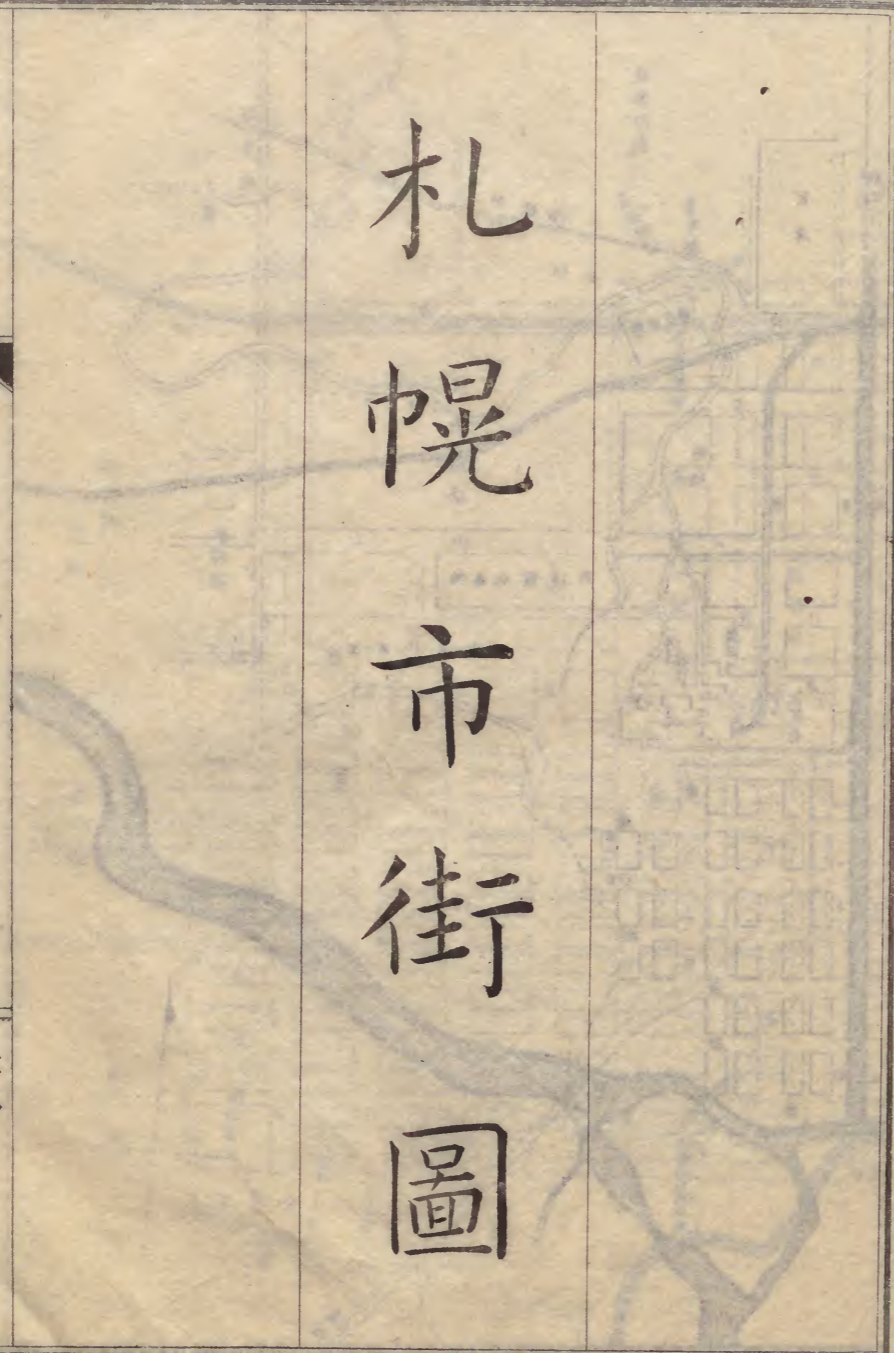 札幌市街圖